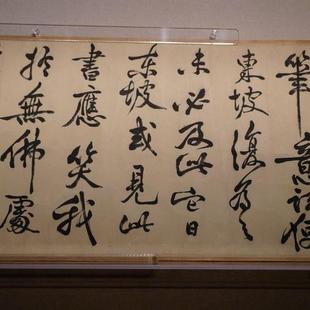 筆意試使
東坡復為之
未必及此它日
東坡或見此
書應笑我
於無佛處